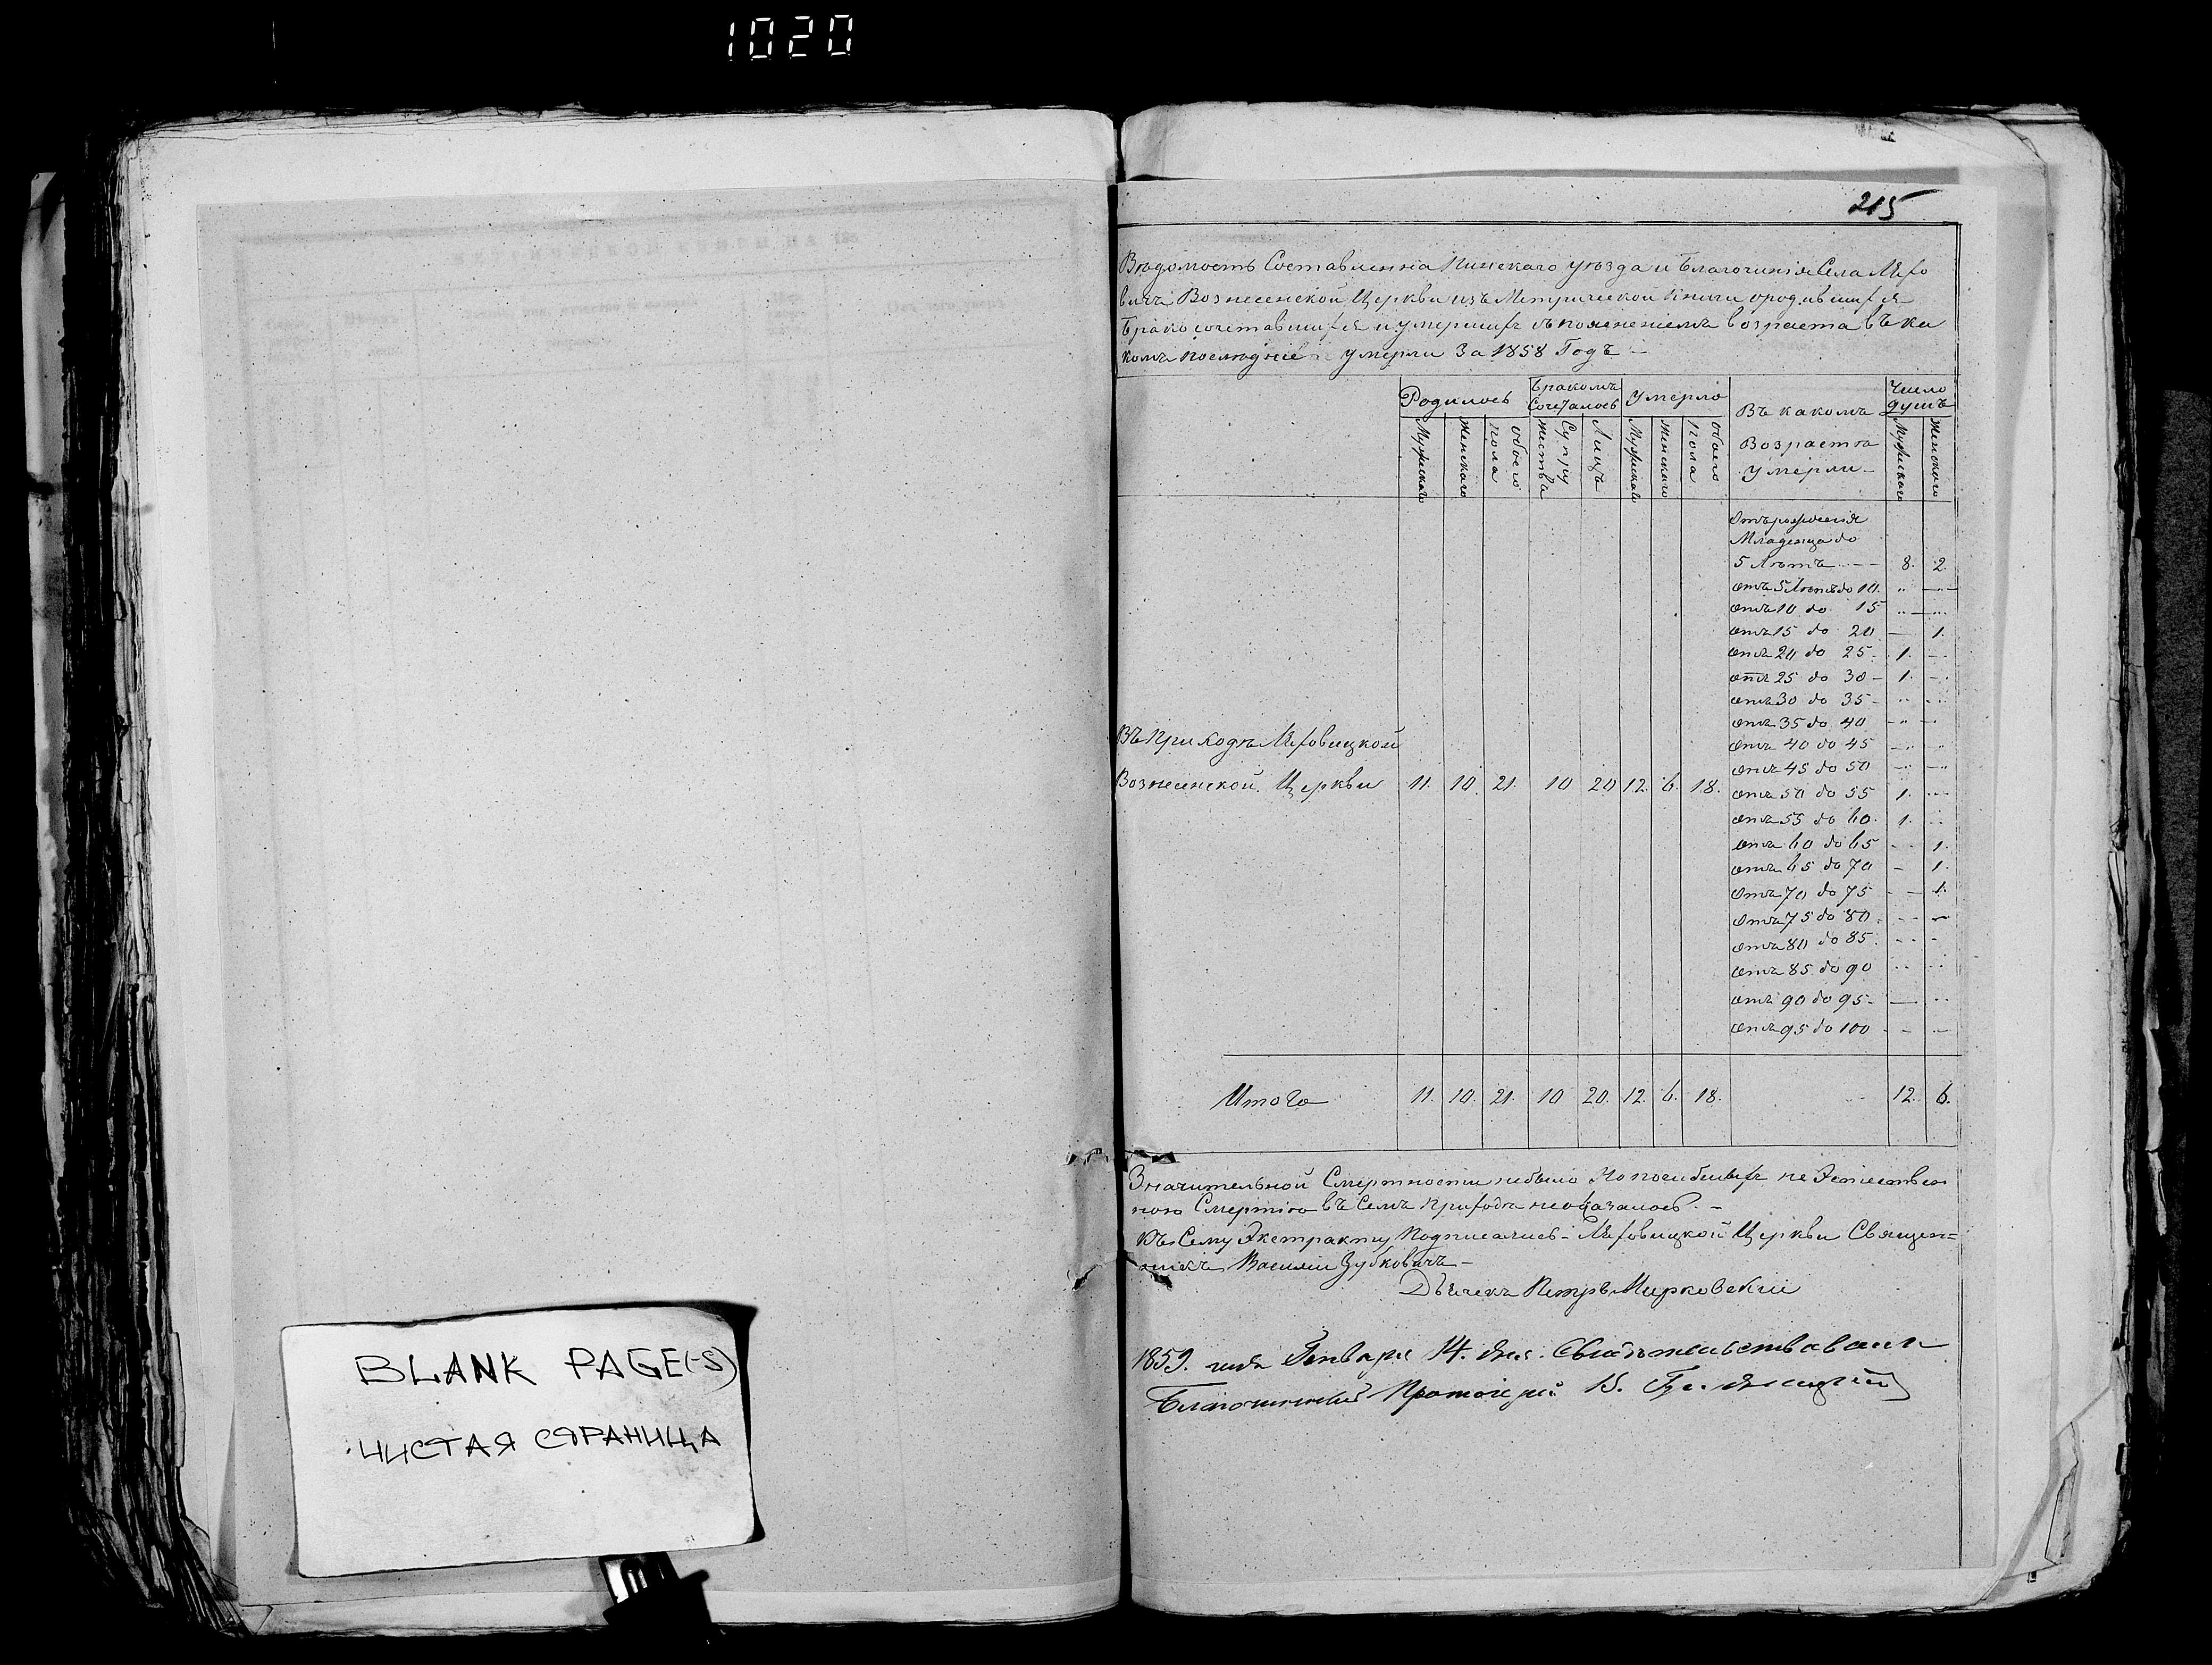 1020
215
Вѣдомость Составленна Пинскаго уѣзда и Благочинія Села Мехо
вичъ Вознесенской Церкви изъ Метрической Книги ородившихся
Бракосочетавшихся и умершихъ съ пояснениемъ возраста въ ка
комъ последніе умерли За 1858 Годъ
Родилось
Бракомъ Сочеталось
Умерло
Въ какомъ Возрастѣ умерли
Число душъ
Мужскаго
Женскаго
обоего пола
Супружествъ
Лицъ
Мужскаго
Женскаго
обоего пола
Мужскаго
Женскаго
Отъ рожденія
Младенца до
5 Лѣтъ 8. 2.
отъ 5 Лѣтъ до 10.
отъ 10 до 15
отъ 15 до 20 — 1.
отъ 20 до 25. 1. —
отъ 25 до 30 — 1. —
отъ 30 до 35 —
отъ 35 до 40
отъ 40 до 45
отъ 45 до 50
отъ 50 до 55 1.
отъ 55 до 60. 1.
отъ 60 до 65 — 1.
отъ 65 до 70 — 1.
отъ 70 до 75 — 1.
отъ 75 до 80.
отъ 80 до 85.
отъ 85 до 90
отъ 90 до 95 —
отъ 95 до 100
Въ Приходѣ
Вознесенской Церкви 11. 10. 21. 10 20 12. 6. 18.
Итого 11. 10. 21. 10 20. 12. 6. 18. 12. 6.
Значительной Смертности небыло Но погибшихъ не Эстествен
ною Смертію въ Семъ приходѣ неоказалось. —
Къ Сему Экстракту Подписались — Церкви Священ=
никъ Василий Зубковичъ —
Дьячекъ Петръ Мирковский
1859. года Января 14. дня. Свидѣтельствовалъ
Благочинный Протоіерей
BLANK PAGE(-S)
ЧИСТАЯ СТРАНИЦА